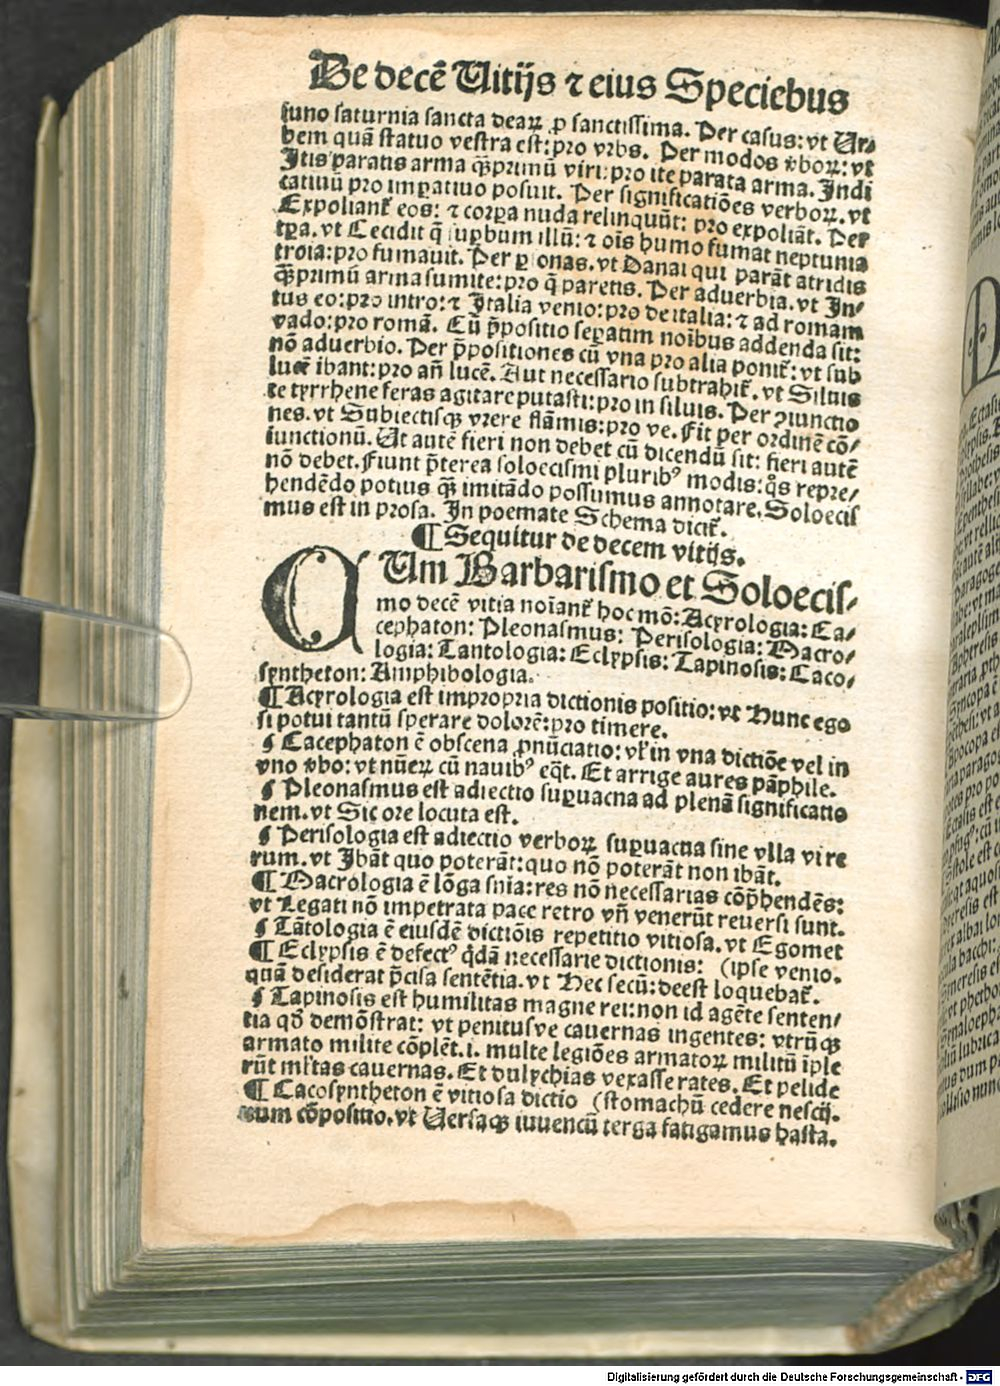 De decē Uitijs ⁊ eius Speciebus
iuno saturnia sancta dearꝝ ꝓ sanctissima. Per casus: vt Ur⸗
bem quā statuo vestra est: pro vrbs. Per modos ꝟboꝝ: vt
Itis paratis arma q̄ꝫprimū viri: pro ite parata arma. Indi
catiuū pro imꝑatiuo posuit. Per significatiões verboꝝ. vt
Expoliant̄ eos: ⁊ corꝑa nuda relinquūt: pro expoliāt. Per
tꝑa. vt Cecidit q̄ suꝑbum illū: ⁊ oīs humo fumat neptunia
troia: pro fumauit. Per ꝑsonas. vt Danai qui parāt atridis
q̄ꝫprimū arma sumite: pro q̄ paretis. Per aduerbia. vt In⸗
tus eo: pro intro: ⁊ Italia venio: pro de italia: ⁊ ad romam
vado: pro romā. Cū p̄positio seꝑatim noībus addenda sit:
nō aduerbio. Per p̄positiones cū vna pro alia ponit̄: vt sub
lucē ibant: pro an̄ lucē. Aut necessario subtrahit̄. vt Siluis
te tyrrhene feras agitare putasti: pro in siluis. Per ꝯiunctio
nes. vt Subiectisqꝫ vrere flāmis: pro ve. Fit per ordinē cō⸗
iunctionū. Ut autē fieri non debet cū dicendū sit: fieri autē
nō debet. Fiunt p̄terea soloecismi pluribꝰ modis: q̊s repre⸗
hendēdo potius q̄ꝫ imitādo possumus annotare. Soloecis
mus est in prosa. In poemate Schema dicit̄.
¶ Sequitur de decem vitijs.
CUm Barbarismo et Soloecis⸗
mo decē vitia noīant̄ hoc mō: Acyrologia: Ca⸗
cephaton: Pleonasmus: Perisologia: Macro⸗
logia: Tantologia: Eclypsis: Tapinosis: Caco⸗
syntheton: Amphibologia.
¶ Acyrologia est impropria dictionis positio: vt Hunc ego
si potui tantū sperare dolorē: pro timere.
¶ Cacephaton ē obscena ꝓnūciatio: vl̄ in vna dictiōe vel in
vno ꝟbo: vt nūerꝝ cū nauibꝰ eq̄t. Et arrige aures pāphile.
¶ Pleonasmus est adiectio suꝑuacua ad plenā significatio
nem. vt Sic ore locuta est.
¶ Perisologia est adiectio verboꝝ suꝑuacua sine vlla vi re
rum. vt Ibāt quo poterāt: quo nō poterāt non ibāt.
¶ Macrologia ē lōga snīa: res nō necessarias cōp̄hendēs:
vt Legati nō impetrata pace retro vn̄ venerūt reuersi sunt.
¶ Tātologia ē eiusdē dictiōis repetitio vitiosa. vt Egomet
¶ Eclypsis ē defectꝰ q̄dā necessarie dictionis: (ipse venio.
quā desiderat p̄cisa sentētia. vt Hec secū: deest loquebat̄.
¶ Tapinosis est humilitas magne rei: non id agēte senten⸗
tia qd̄ demōstrat: vt penitusve cauernas ingentes: vtrūqꝫ
armato milite cōplēt. i. multe legiōes armatoꝝ militū īple
rūt ml̄tas cauernas. Et dulychias vexasse rates. Et pelide
¶ Cacosyntheton ē vitiosa dictio (stomachū cedere nescij.
num cōpositio. vt Uersaqꝫ iuuencū terga fatigamus hasta.
Digitalisierung gefördert durch die Deutsche Forschungsgemeinschaft - DFG